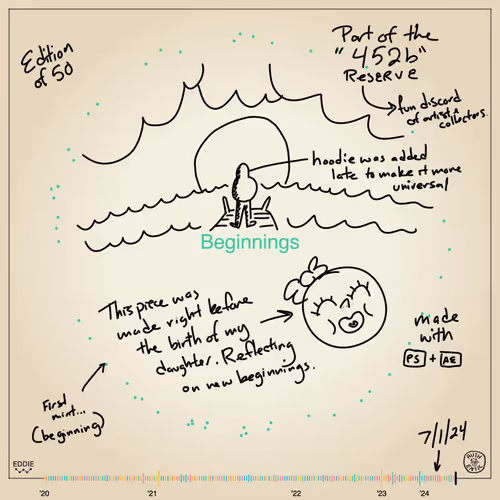 Edition
of 50
Part of the
"452b"
Reserve
fun discord
of artist &
collectors.
hoodie was added
late to make it more
universal
Beginnings
This piece was
made right before
the birth of my
daughter. Reflecting
on new beginnings.
made
with
PS + AE
First
mint...
(beginning)
7/1/24
EDDIE
'20 '21 '22 '23 '24